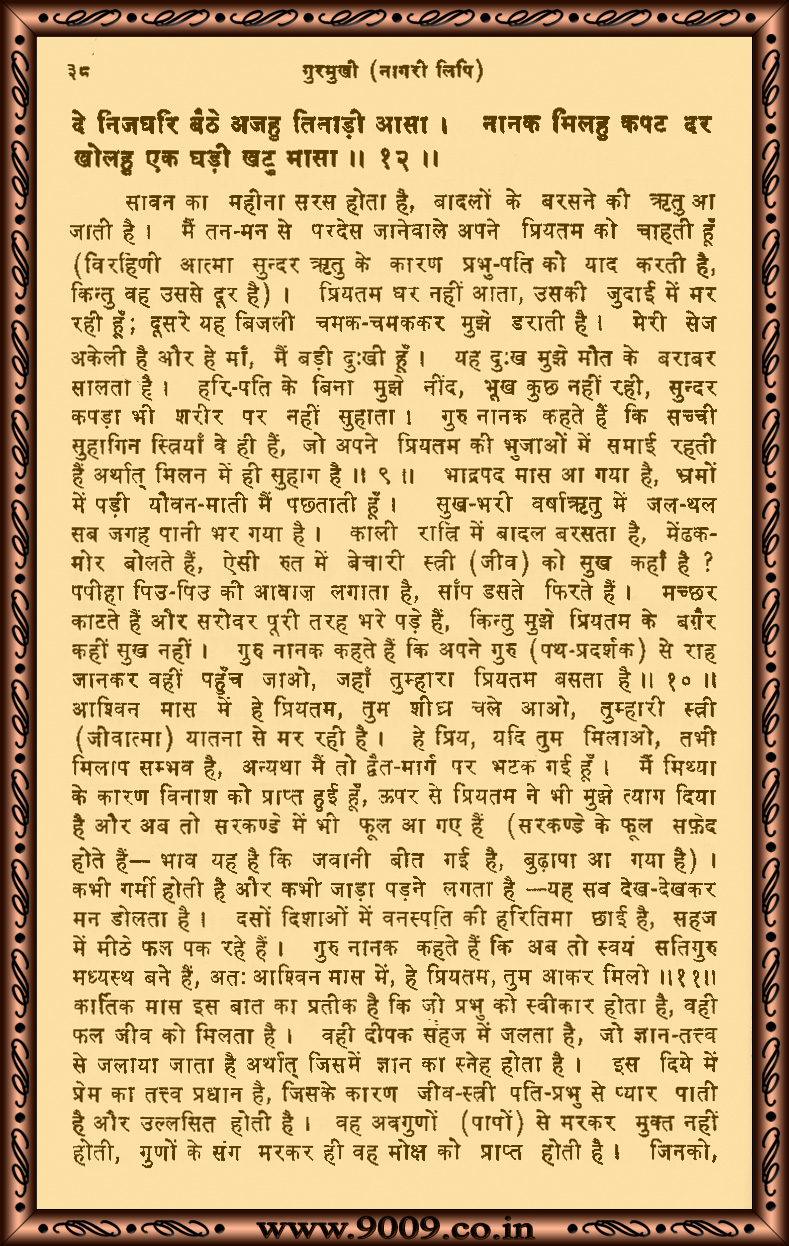 ३८ गुरमुखी (नागरी लिपि)
दे निजघरि बैठे अजहु तिनाड़ी आसा । नानक मिलहु कपट दर
खोलहु एक घड़ी खटु मासा ॥ १२ ॥
सावन का महीना सरस होता है, बादलों के बरसने की ऋतु आ
जाती है । मैं तन-मन से परदेस जानेवाले अपने प्रियतम को चाहती हूँ
(विरहिणी आत्मा सुन्दर ऋतु के कारण प्रभु-पति को याद करती है,
किन्तु वह उससे दूर है) । प्रियतम घर नहीं आता, उसकी जुदाई में मर
रही हूँ; दूसरे यह बिजली चमक-चमककर मुझे डराती है । मेरी सेज
अकेली है और हे माँ, मैं बड़ी दुःखी हूँ । यह दुःख मुझे मौत के बराबर
सालता है । हरि-पति के बिना मुझे नींद, भूख कुछ नहीं रही, सुन्दर
कपड़ा भी शरीर पर नहीं सुहाता । गुरु नानक कहते हैं कि सच्ची
सुहागिन स्त्रियाँ वे ही हैं, जो अपने प्रियतम की भुजाओं में समाई रहती
हैं अर्थात् मिलन में ही सुहाग है ॥ ९ ॥ भाद्रपद मास आ गया है, भ्रमों
में पड़ी यौवन-माती मैं पछताती हूँ । सुख-भरी वर्षाऋतु में जल-थल
सब जगह पानी भर गया है । काली रात्रि में बादल बरसता है, मेंढक-
मोर बोलते हैं, ऐसी रुत में बेचारी स्त्री (जीव) को सुख कहाँ है ?
पपीहा पिउ-पिउ की आवाज़ लगाता है, साँप डसते फिरते हैं । मच्छर
काटते हैं और सरोवर पूरी तरह भरे पड़े हैं, किन्तु मुझे प्रियतम के बग़ैर
कहीं सुख नहीं । गुरु नानक कहते हैं कि अपने गुरु (पथ-प्रदर्शक) से राह
जानकर वहीं पहुँच जाओ, जहाँ तुम्हारा प्रियतम बसता है ॥ १० ॥
आश्विन मास में हे प्रियतम, तुम शीघ्र चले आओ, तुम्हारी स्त्री
(जीवात्मा) यातना से मर रही है । हे प्रिय, यदि तुम मिलाओ, तभी
मिलाप सम्भव है, अन्यथा मैं तो द्वैत-मार्ग पर भटक गई हूँ । मैं मिथ्या
के कारण विनाश को प्राप्त हुई हूँ, ऊपर से प्रियतम ने भी मुझे त्याग दिया
है और अब तो सरकण्डे में भी फूल आ गए हैं (सरकण्डे के फूल सफ़ेद
होते हैं— भाव यह है कि जवानी बीत गई है, बुढ़ापा आ गया है) ।
कभी गर्मी होती है और कभी जाड़ा पड़ने लगता है —यह सब देख-देखकर
मन डोलता है । दसों दिशाओं में वनस्पति की हरितिमा छाई है, सहज
में मीठे फल पक रहे हैं । गुरु नानक कहते हैं कि अब तो स्वयं सतिगुरु
मध्यस्थ बने हैं, अतः आश्विन मास में, हे प्रियतम, तुम आकर मिलो ॥११॥
कार्तिक मास इस बात का प्रतीक है कि जो प्रभु को स्वीकार होता है, वही
फल जीव को मिलता है । वही दीपक सहज में जलता है, जो ज्ञान-तत्त्व
से जलाया जाता है अर्थात् जिसमें ज्ञान का स्नेह होता है । इस दिये में
प्रेम का तत्त्व प्रधान है, जिसके कारण जीव-स्त्री पति-प्रभु से प्यार पाती
है और उल्लसित होती है । वह अवगुणों (पापों) से मरकर मुक्त नहीं
होती, गुणों के संग मरकर ही वह मोक्ष को प्राप्त होती है । जिनको,
www.9009.co.in